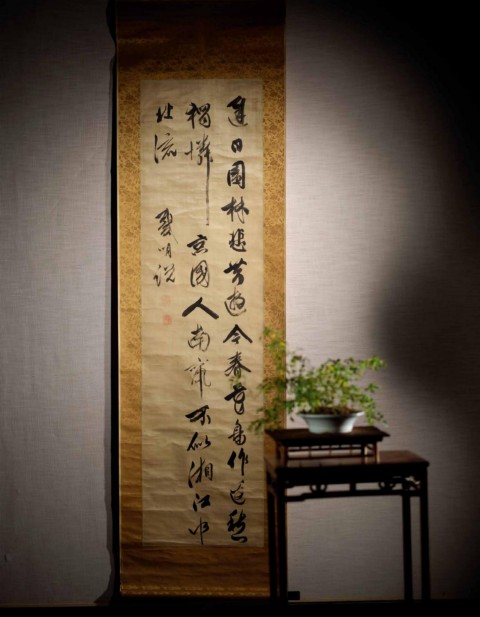 遲日園林悲昔遊今春花鳥作邊愁
獨憐京國人南竄不似湘江水
北流 戴明說